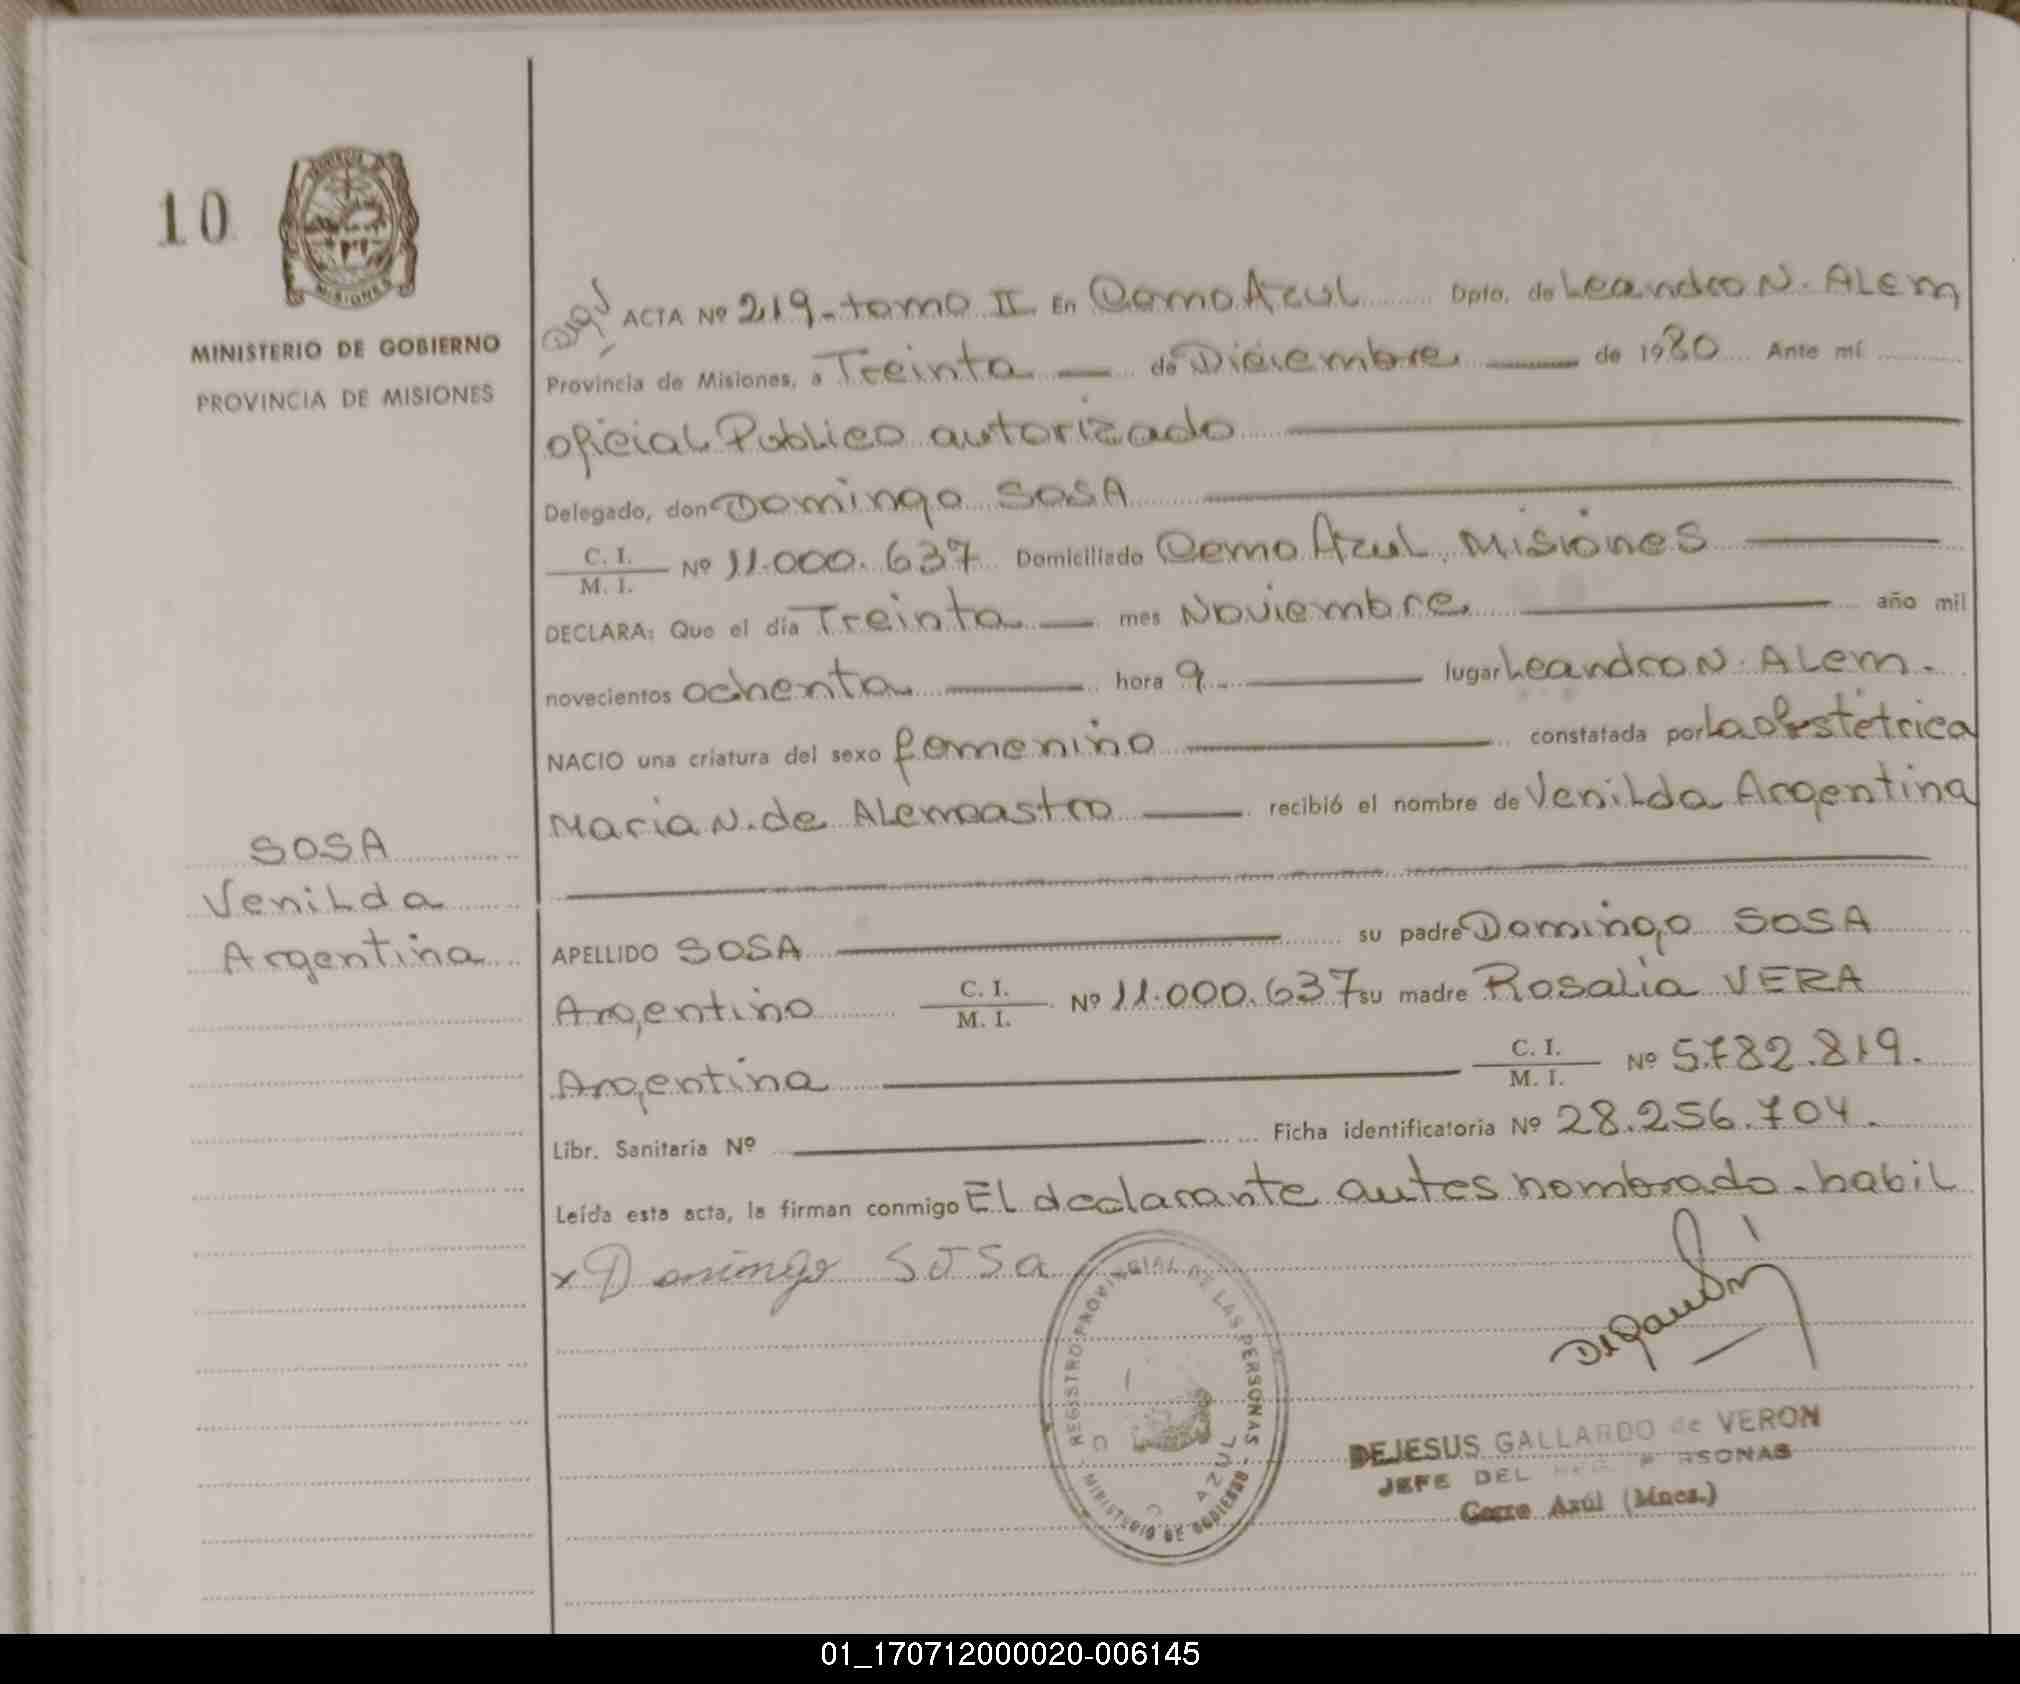 10
MISIONES
MINISTERIO DE GOBIERNO
PROVINCIA DE MISIONES
ACTA Nº 219-tomo II En Cerro Azul Dpto. de Leandro N. ALEM
Provincia de Misiones, a Treinta de Diciembre de 1980 Ante mí
oficial Publico autorizado
Delegado, don Domingo SOSA
C. I.
M. I. Nº 11.000.637 Domiciliado Cerro Azul, Misiones
DECLARA: Que el día Treinta mes Noviembre año mil
novecientos ochenta hora 9 lugar Leandro N. ALem.
NACIO una criatura del sexo femenino constatada por La obstetrica
Maria N. de recibió el nombre de Venilda Argentina
SOSA
Venilda
Argentina
APELLIDO SOSA su padre Domingo SOSA
Argentino C. I.
M. I. Nº 11.000.637 su madre Rosalia VERA
Argentina C. I.
M. I. Nº 5.782.819.
Libr. Sanitaria Nº Ficha identificatoria Nº 28.256.704.
Leída esta acta, la firman conmigo El declarante antes nombrado. habil
x Domingo SOSa
REGISTRO PROVINCIAL DE LAS PERSONAS
AZUL
MINISTERIO DE GOBIERNO
DEJESUS GALLARDO de VERON
JEFE DEL
Cerro Azúl (Mnes.)
01_170712000020-006145